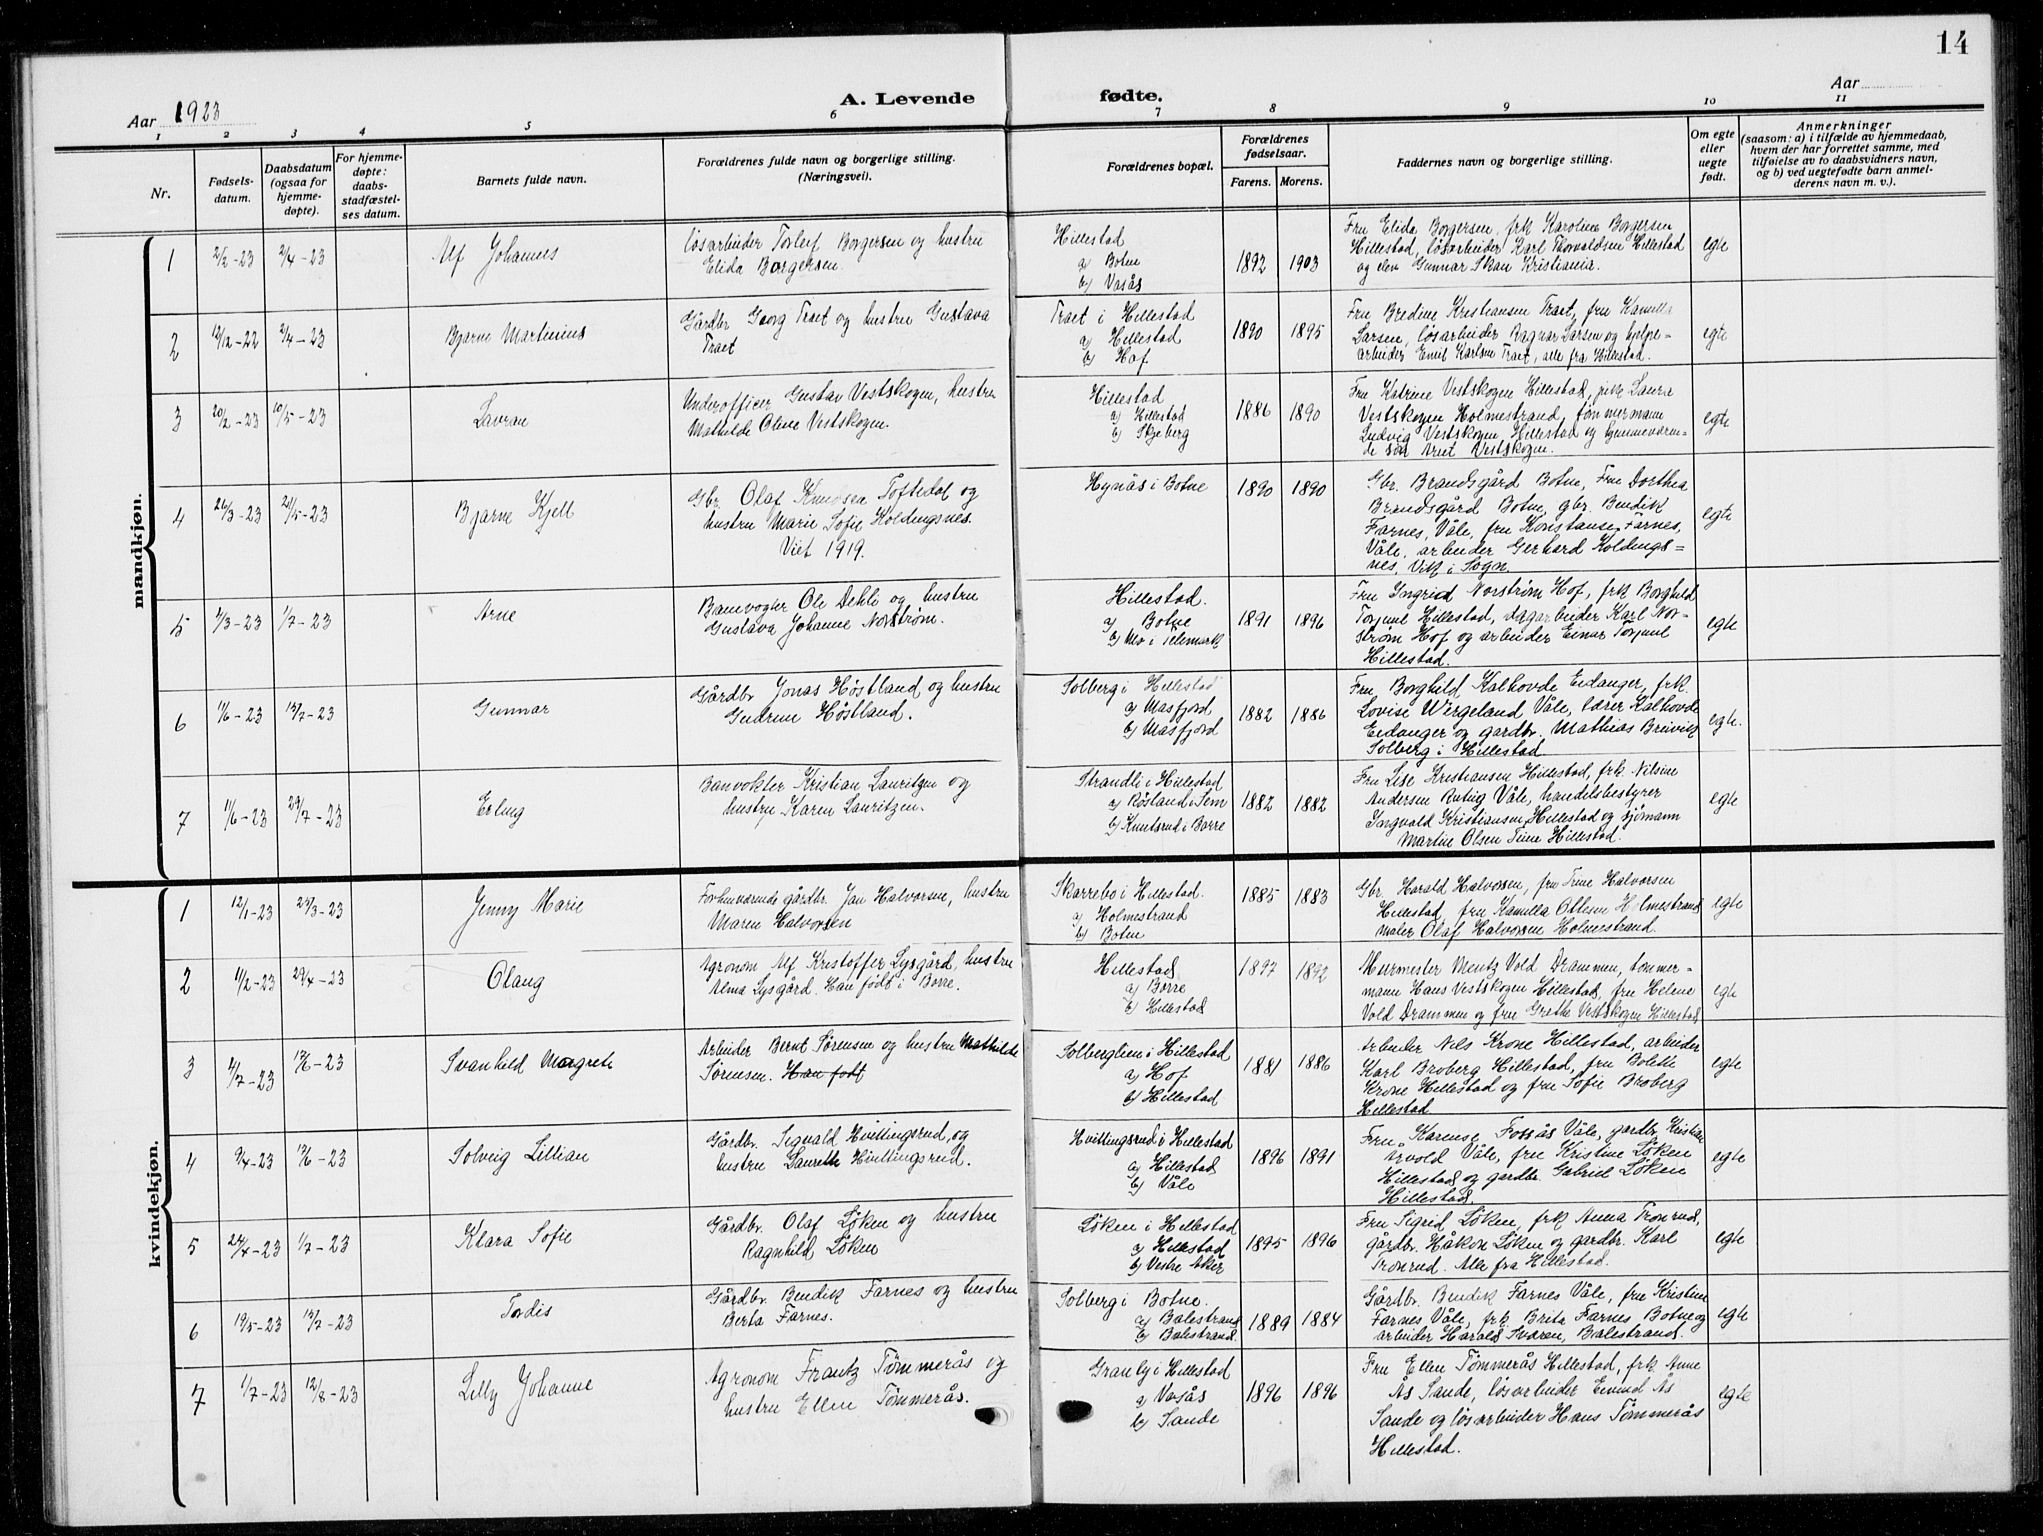 14
Aar 1923
A. Levende fødte.
Aar
1 2 3 4 5 6 7 8 9 10 11
Nr.
Fødsels-
datum.
Daabsdatum
(ogsaa for
hjemme-
døpte).
For hjemme-
døpte:
daabs-
stadfæstel-
ses datum.
Barnets fulde navn.
Forældrenes fulde navn og borgerlige stilling.
(Næringsvei).
Forældrenes bopæl.
Forældrenes
fødselsaar.
Farens. Morens.
Faddernes navn og borgerlige stilling.
Om egte
eller
uegte
født.
Anmerkninger
(saasom: a) i tilfælde av hjemmedaab,
hvem der har forrettet samme, med
tilføielse av to daabsvidners navn,
og b) ved uegtefødte barn anmel-
derens navn m. v.).
mandkjøn.
1 2/2-23 2/4-23 Alf Johannes
løsarbeider Torleif Borgersen og hustru
Elida Borgersen.
Hillestad
a) Botne
b) Vasås
1892 1903
Fru Elida Borgersen, frk Karoline Borgersen
Hillestad, løsarbeider Karl Thorvaldsen Hillestad
og elev Gunnar Skau Kristiania.
egte
2 12/12-22 2/4-23 Bjarne Martinius
Gårdbr Georg Traet og hustru Gustava
Traet
Traet i Hillestad
a) Hillestad
b) Hof
1890 1895
Fru Bredine Kristiansen Traet, fru Kamilla
Larsen, løsarbeider Ragnar Larsen og hjelpe-
arbeider Emil Karlsen Traet, alle fra Hillestad.
egte
3 20/2-23 10/5-23 Lavran
Underofficer Gustav Vestskogen, hustru
Mathilde Oline Vestskogen.
Hillestad
a) Hillestad
b) Skjeberg
1886 1890
Fru Katrine Vestskogen Hillestad, frk Laura
Vestskogen Holmestrand, tømmermann
Ludvig Vestskogen Hillestad og hjemmeværen-
de søn Arnt Vestskogen.
egte
4 26/3-23 21/5-23 Bjarne Kjell
Gbr. Olaf Knudsen Toftedal og
hustru Marie Sofie Holdingsnes.
Viet 1919.
Hynås i Botne
1890 1890
Gbr. Brandsgård Botne, Fru Dorthea
Brandsgård Botne, gbr. Bendik
Farnes, Våle, fru Konstanse Farnes,
Våle, arbeider Gerhard Holdings=
nes, Vik i Sogn.
egte
5 4/3-23 1/7-23 Arne
Banevogter Ole Dehli og hustru
Gustava Johanne Norstrøm.
Hillestad.
a) Botne
b) Mo i Telemark
1891 1896
Fru Ingrid Norstrøm Hof, frk Borghild
Torjuul Hillestad, dagarbeider Karl Nor-
strøm Hof og arbeider Einar Torjuul
Hillestad.
egte
6 1/6-23 15/7-23 Gunnar
Gårdbr Jonas Høstland og hustru
Gudrun Høstland.
Solberg i Hillestad
a) Masfjord
b) Masfjord
1882 1886
Fru Borghild Kalhovde Eidanger, frk.
Lovise Wergeland Våle, lærer Kalhovde
Eidanger og gardbr. Mathias Breivik
Solberg i Hillestad
egte.
7 11/6-23 29/7-23 Erling
Banvokter Kristian Lauritzen og
hustru Karen Lauritzen.
Strandli i Hillestad
a) Røsland i Sem
b) Knutsrud i Borre
1882 1882
Fru Lise Kristiansen Hillestad, frk. Nilsine
Andersen Våle, handelsbestyrer
Ingvald Kristiansen Hillestad og sjømann
Martin Olsen Hillestad.
egte
kvindekjøn.
1 12/1-23 25/3-23 Jenny Marie
Forhenværende gårdbr. Jan Halvorsen, hustru
Maren Halvorsen
Skarrebo i Hillestad.
a) Holmestrand
b) Botne
1885 1883
Gbr Harald Halvorsen, fru Trine Halvorsen
Hillestad, fru Kamilla Ottesen Holmestrand
maler Olaf Halvorsen Holmestrand.
egte
2 11/2-23 29/4-23 Olaug
Agronom Alf Kristoffer Lysgård, hustru
Alma Lysgård. Han født i Borre.
Hillestad
a) Borre
b) Hillestad
1897 1892
Murmester Mentz Vold Drammen, tømmer-
mann Hans Vestskogen Hillestad, fru Helene
Vold Drammen og frue Grethe Vestskogen Hillestad
egte
3 4/7-23 17/6-23 Svanhild Margrete
Arbeider Bernt Sørensen og hustru Mathilde
Sørensen. Han født
Solberglien i Hillestad
a) Hof
b) Hillestad
1881 1886
Arbeider Nils Krone Hillestad, arbeider
Karl Broberg Hillestad, fru Bolette
Krone Hillestad og fru Sofie Broberg
Hillestad
egte
4 9/4-23 17/6-23 Solveig Lillian
Gårdbr. Sigvald Hvittingsrud, og
hustru Laurette Hvittingsrud.
Hvittingsrud i Hillestad
a) Hillestad
b) Våle
1896 1891
Fru Karense Fossås Våle, gardbr. Kristian
Arvold Våle, fru Kristine Løken
Hillestad og gardbr. Gabriel Løken
Hillestad.
egte
5 24/4-23 1/7-23 Klara Sofie
Gårdbr. Olaf Løken og hustru
Ragnhild Løken
Løken i Hillestad
a) Hillestad
b) Vestre Aker
1895 1896
Fru Sigrid Løken, frk Anna Tronrud,
gårdbr. Håkon Løken og gardbr. Karl
Tronrud. Alle fra Hillestad.
egte
6 19/5-23 15/7-23 Tordis
Gårdbr. Bendik Farnes og hustru
Berta Farnes.
Solberg i Botne.
a) Balestrand
b) Balestrand
1889 1884
Gårdbr. Bendik Farnes Våle, fru Kristine
Farnes Våle, frk. Brita Farnes Botne og
arbeider Harald Sværen, Balestrand.
egte
7 1/7-23 12/8-23 Lilly Johanne
Agronom Frantz Tømmerås og
hustru Ellen Tømmerås.
Granly i Hillestad
a) Vasås
b) Sande
1896 1896
Fru Ellen Tømmerås Hillestad, frk. Anne
Ås Sande, løsarbeider Eivind Ås
Sande og løsarbeider Hans Tømmerås
Hillestad.
egte